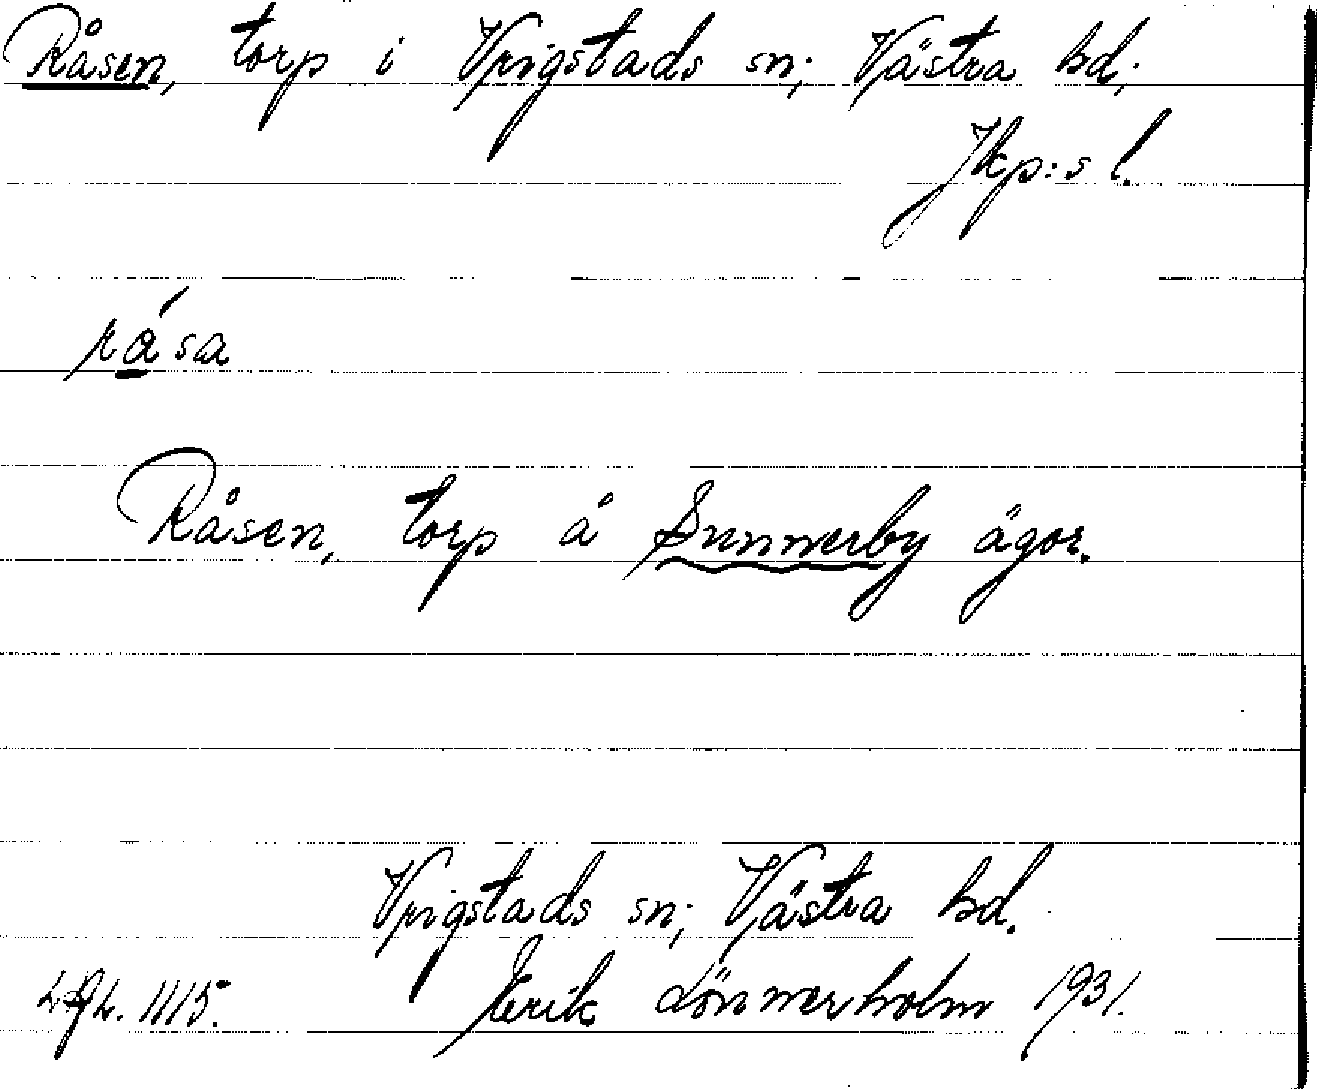 Råsen, torp i Vrigstads sn; Västra hd;
Jkp:s l.
rá sa
Råsen, torp å Sunnerby ägor.
Vrigstads sn; Västra hd.
Erik Lönnerholm 1931.
1115.